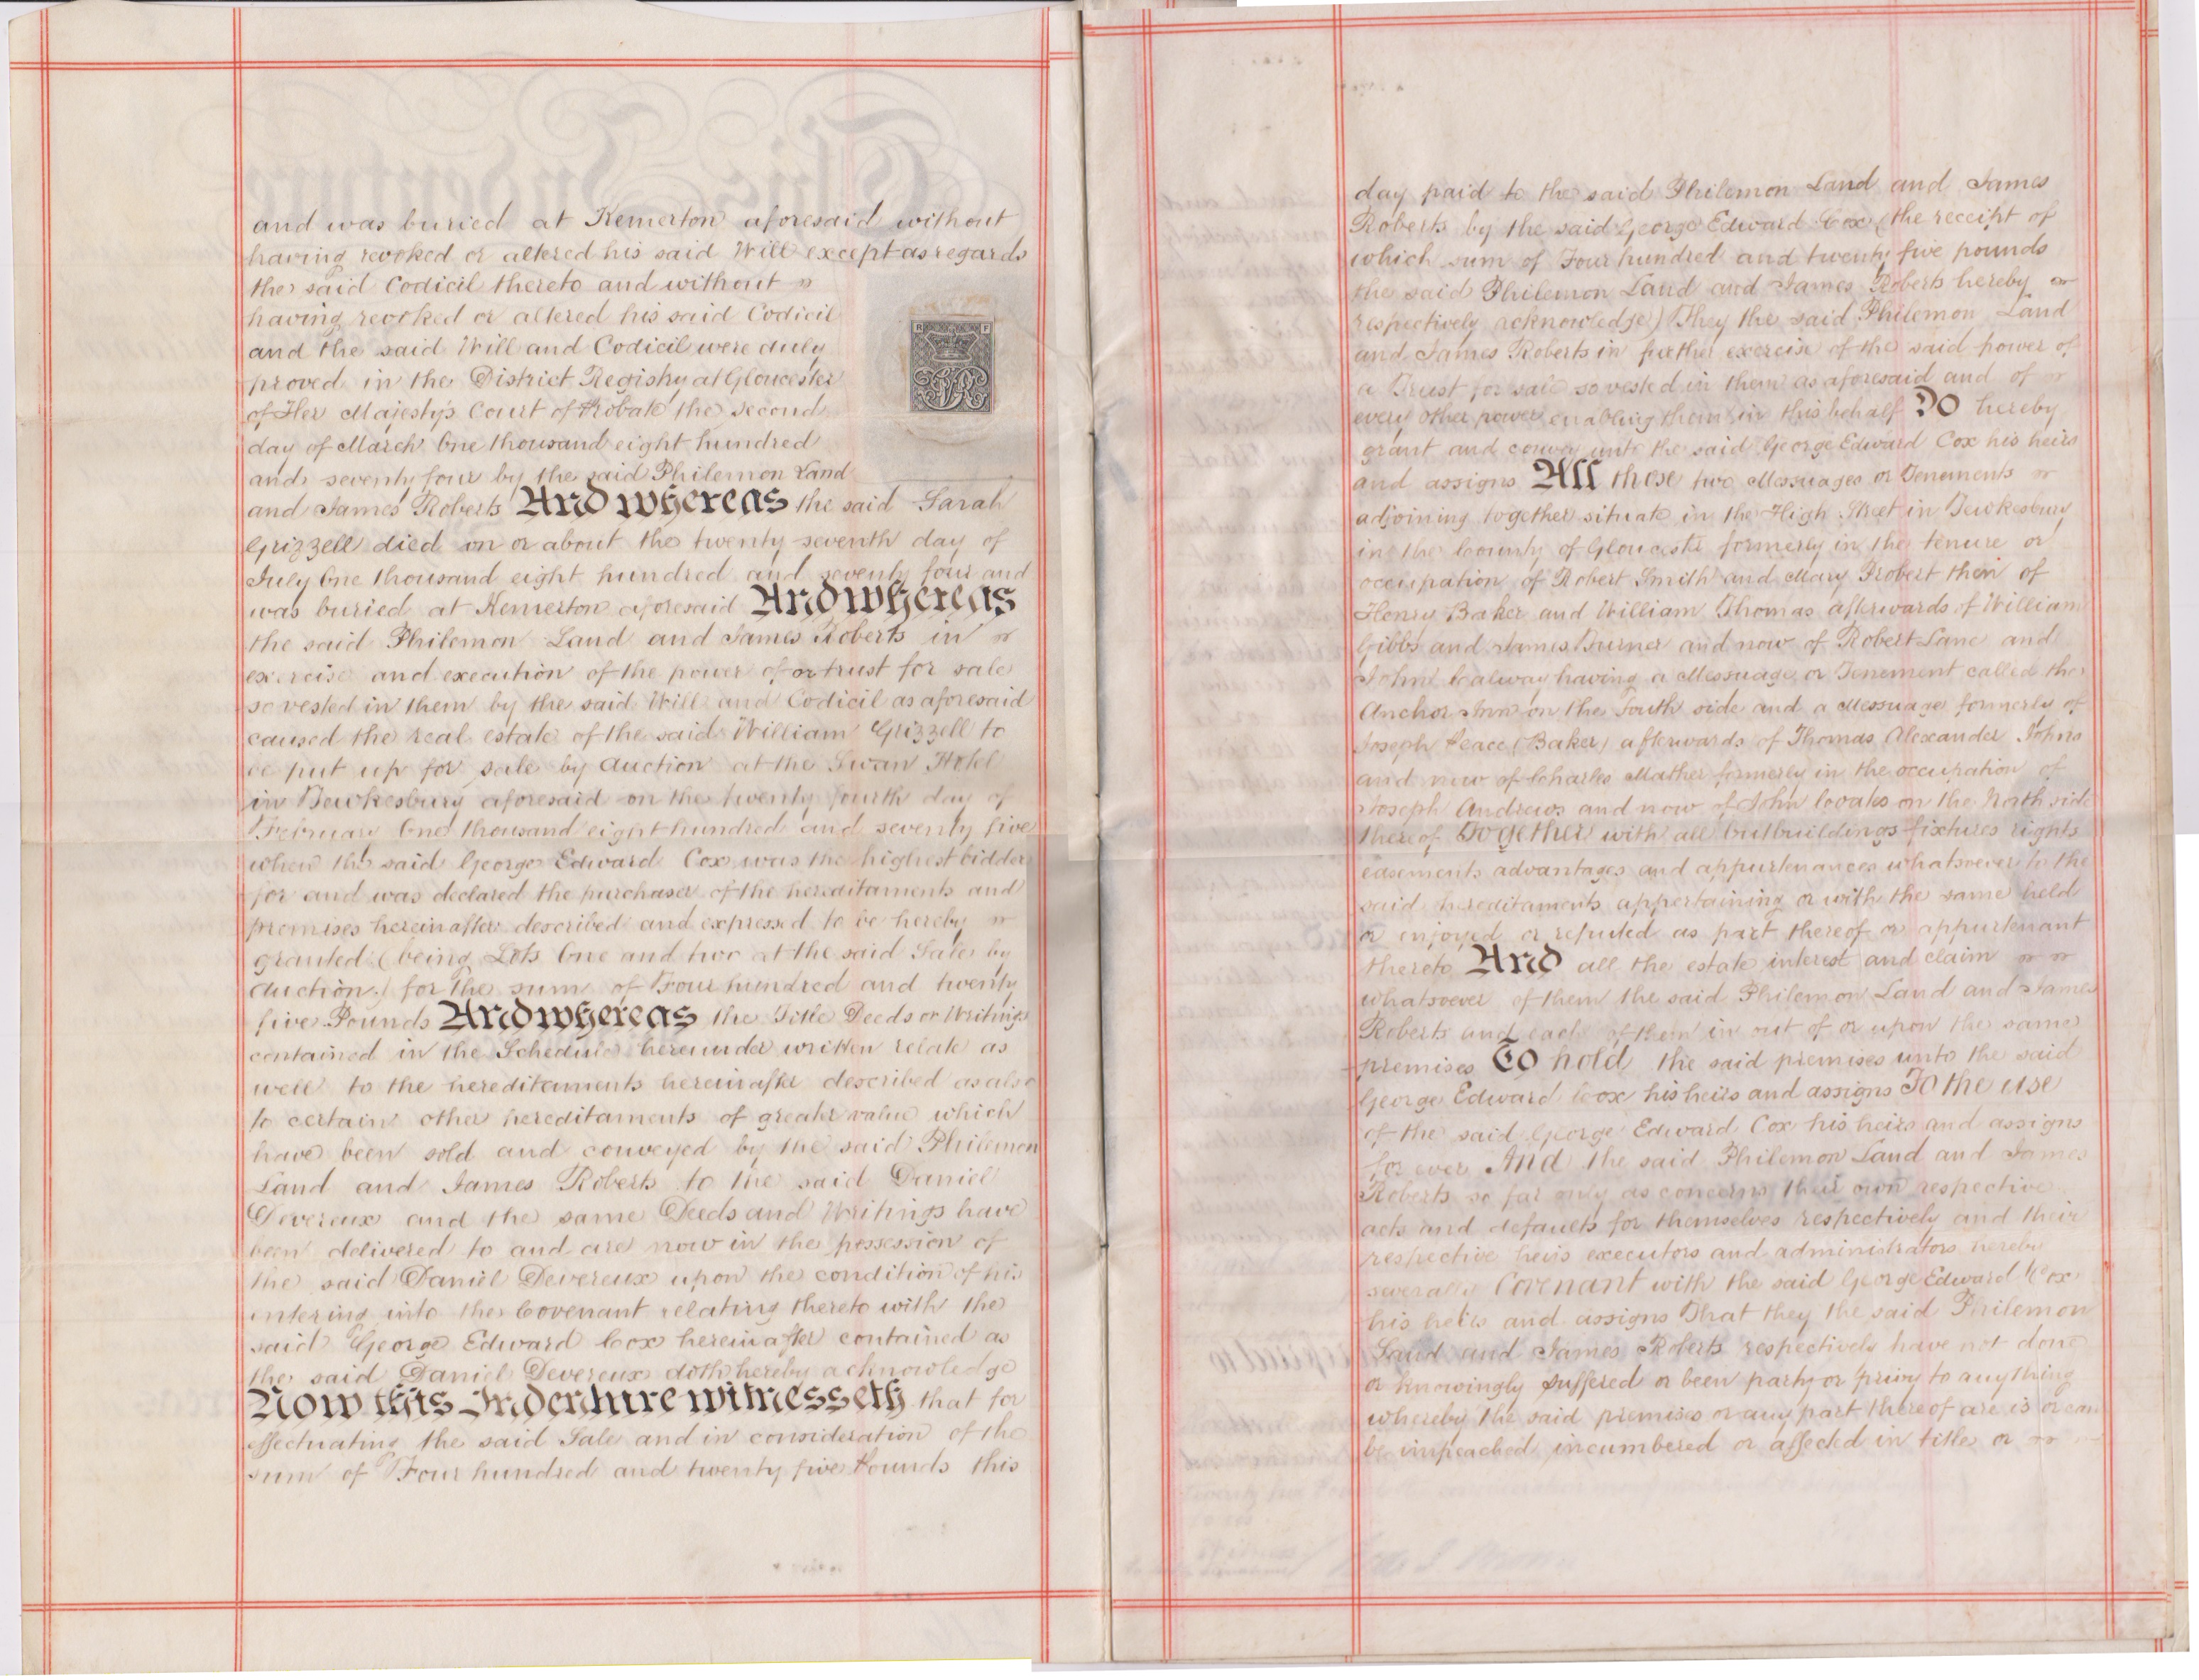 and was buried at Kemerton aforesaid without
having revoked or altered his said Will except as regards
the said Codicil thereto and without
having revoked or altered his said Codicil
and the said Will and Codicil were duly
proved in the District Registry at Gloucester
of Her Majesty's Court of Probate the second
day of March One thousand eight hundred
and seventy four by the said Philemon Land
and James Roberts And whereas the said Sarah
Grizzell died on or about the twenty seventh day of
July One thousand eight hundred and seventy four and
was buried at Kemerton aforesaid And whereas
the said Philemon Land and James Roberts in
exercise and execution of the power of or trust for sale
so vested in them by the said Will and Codicil as aforesaid
caused the real estate of the said William Grizzell to
be put up for sale by auction at the Swan Hotel
in Tewkesbury aforesaid on the twenty fourth day of
February One thousand eight hundred and seventy five
when the said George Edward Cox was the highest bidder
for and was declared the purchaser of the hereditaments and
premises hereinafter described and expressed to be hereby
granted (being Lots One and two at the said Sale by
auction) for the sum of Four hundred and twenty
five Pounds And whereas the Title Deeds or Writings
contained in the Schedule hereunder written relate as
well to the hereditaments hereinafter described as also
to certain other hereditaments of greater value which
have been sold and conveyed by the said Philemon
Land and James Roberts to the said Daniel
Devereux and the same Deeds and Writings have
been delivered to and are now in the possession of
the said Daniel Devereux upon the condition of his
entering into the Covenant relating thereto with the
said George Edward Cox hereinafter contained as
the said Daniel Devereux doth hereby acknowledge
Now this Indenture witnesseth that for
effectuating the said Sale and in consideration of the
sum of Four hundred and twenty five Pounds this
R F
VR
day paid to the said Philemon Land and James
Roberts by the said George Edward Cox (the receipt of
which sum of Four hundred and twenty five pounds
the said Philemon Land and James Roberts hereby
respectively acknowledge) They the said Philemon Land
and James Roberts in further exercise of the said power of
a Trust for sale so vested in them as aforesaid and of
every other power enabling them in this behalf Do hereby
grant and convey unto the said George Edward Cox his heirs
and assigns All those two Messuages or Tenements
adjoining together situate in the High Street in Tewkesbury
in the County of Gloucester formerly in the tenure or
occupation of Robert Smith and Mary Probert then of
Henry Baker and William Thomas afterwards of William
Gibbs and James Turner and now of Robert Lane and
John Calway having a Messuage or Tenement called the
Anchor Inn on the South side and a Messuage formerly of
Joseph Peace (Baker) afterwards of Thomas Alexander Johns
and now of Charles Mather formerly in the occupation of
Joseph Andrews and now of John on the North side
thereof Together with all Outbuildings fixtures rights
easements advantages and appurtenances whatsoever to the
said hereditaments appertaining or with the same held
or enjoyed or reputed as part thereof or appurtenant
thereto And all the estate interest and claim
whatsoever of them the said Philemon Land and James
Roberts and each of them in out of or upon the same
premises To hold the said premises unto the said
George Edward Cox his heirs and assigns To the use
of the said George Edward Cox his heirs and assigns
for ever And the said Philemon Land and James
Roberts so far only as concerns their own respective
acts and defaults for themselves respectively and their
respective heirs executors and administrators hereby
severally Covenant with the said George Edward Cox
his heirs and assigns That they the said Philemon
Land and James Roberts respectively have not done
or knowingly suffered or been party or privy to anything
whereby the said premises or any part thereof are is or can
be impeached incumbered or affected in title or